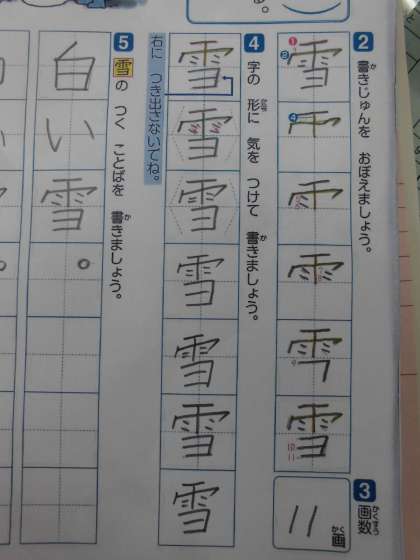 る。
2 書きじゅんを おぼえましょう。
雪
雪
3 画数
11画
4 字の 形に 気を つけて 書きましょう。
雪
雪
雪
雪
雪
雪
雪
右に つき出さないでね。
5 雪の つく ことばを 書きましょう。
白い雪。